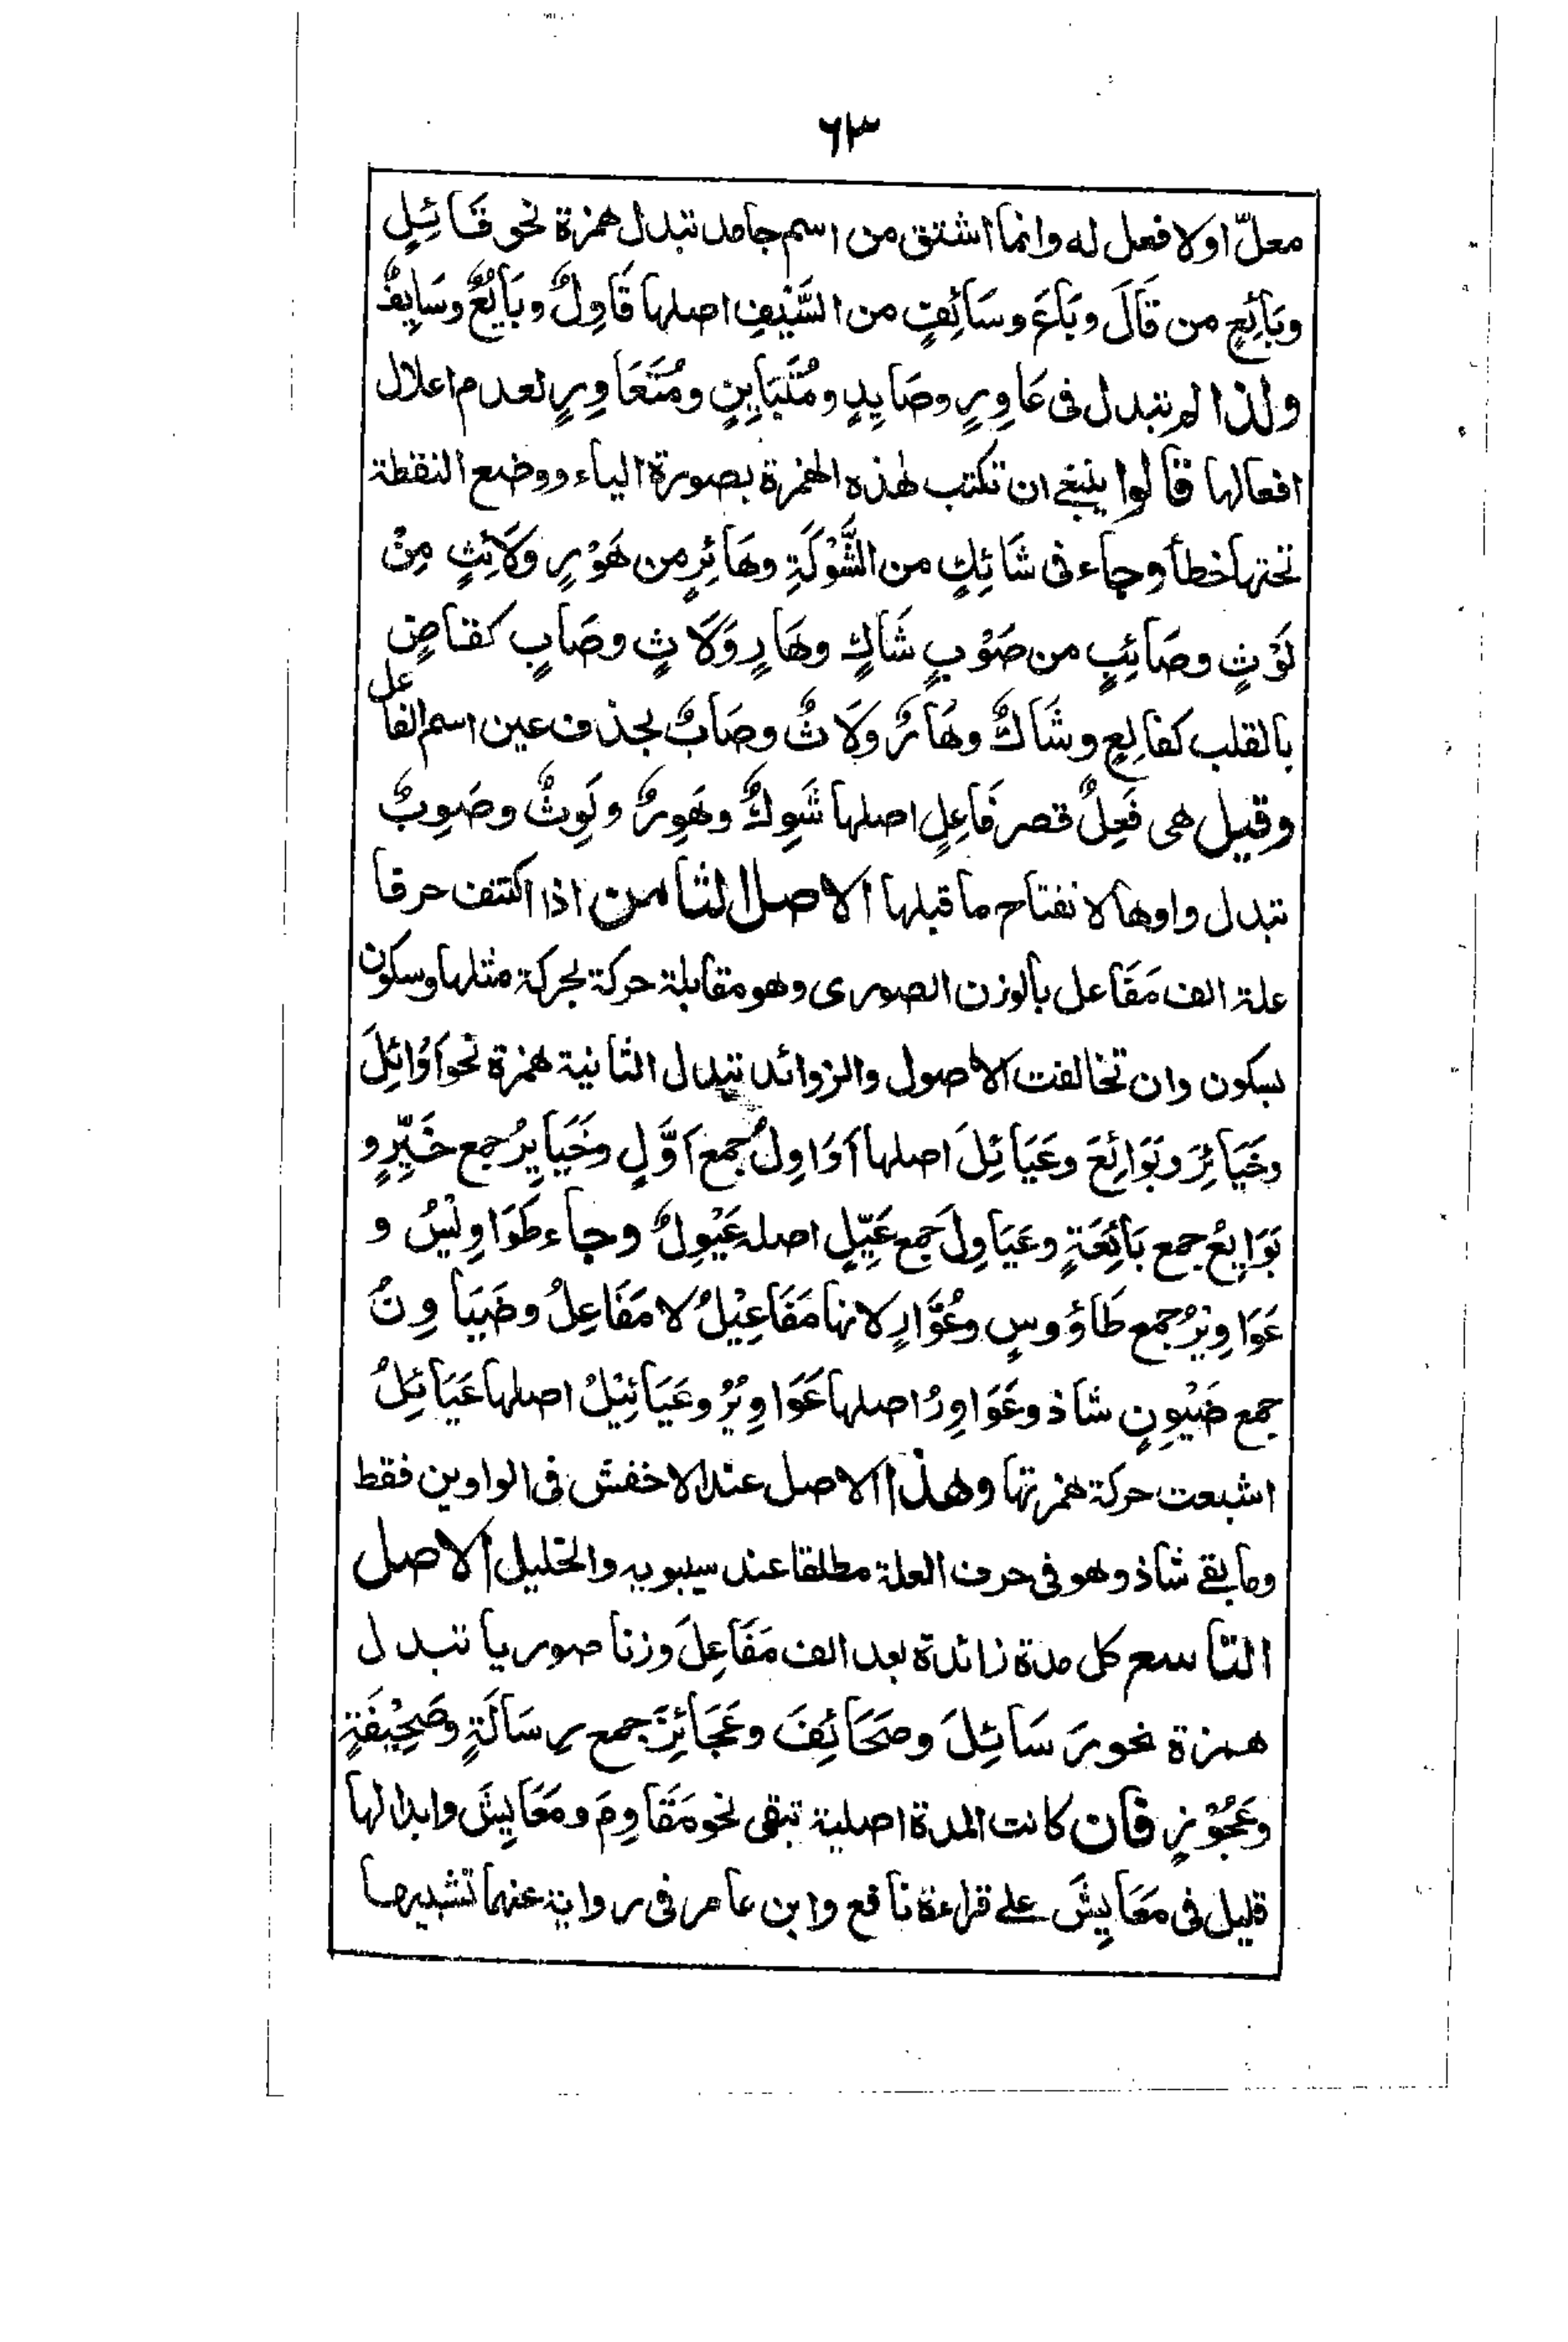 ٦٣
معلّ اولا فعل له وانما اشتق من اسم جامد تبدل همزة نحو قَائِلٍ
وبَائِعٍ من قَالَ وبَاعَ وسَائِفٍ من السَّيْفِ اصلها قَاوِلٌ وبَايِعٌ وسَايِفٌ
ولذا لم تبدل فى عَاوِرٍ وصَايِدٍ ومُتَبَايِنٍ ومُتَعَاوِرٍ لعدم اعلال
افعالها قالوا ينبغى ان تكتب لهذه الهمزة بصورة الياء ووضع النقطة
تحتها خطأ وجاء فى شَائِكٍ من الشَّوْكَةِ وهَائِرٍ من هَوْرٍ ولَائِثٍ مِنْ
لَوْثٍ وصَائِبٍ من صَوْبٍ شَاكٍ وهَارٍ ولَاثٍ وصَابٍ كقاضٍ
بالقلب كفَالِعٍ وشَاكٌ وهَارٌ ولَاثٌ وصَابٌ بحذف عين اسم الفاعل
وقيل هى فَعِلٌ قصر فَاعِلٍ اصلها شَوِكٌ وهَوِرٌ ولَوِثٌ وصَوِبٌ
تبدل واوها لانفتاح ما قبلها الاصل الثامن اذا اكتنف حرفا
علة الف مَفَاعل بالوزن الصورى وهو مقابلة حركة بحركة مثلها وسكون
بسكون وان تخالفت الاصول والزوائد تبدل الثانية همزة نحو اَوَائِلَ
وخَيَائِرَ وبَوَائِعَ وعَيَائِلَ اصلها اَوَاوِلُ جمع اَوَّلٍ وخَيَايِرُ جمع خَيِّرٍ و
بَوَايِعُ جمع بَائِعَةٍ وعَيَاوِلَ جمع عَيِّلٍ اصله عَيْوِلٌ وجاء طَوَاوِيْسُ و
عَوَاوِيْرُ جمع طَاؤوسٍ وعُوَّارٍ لانها مَفَاعِيْلُ لا مَفَاعِلُ وضَيَاوِنُ
جمع ضَيْوِنٍ شاذ وعَوَاوِرُ اصلها عَوَاوِيْرُ وعَيَائِيْلُ اصلها عَيَائِلُ
اشبعت حركة همزتها ولهذا الاصل عند الاخفش فى الواوين فقط
وما بقے شاذ وهو فى حرف العلة مطلقا عند سيبويه والخليل الاصل
التاسع كل مدة زائدة بعد الف مَفَاعِلَ وزنا صوريا تبدل
همزة نحو رَسَائِلَ وصَحَائِفَ وعَجَائِزَ جمع رِسَالَةٍ وصَحِيْفَةٍ
وعَجُوْزٍ فان كانت المدة اصلية تبقى نحو مَقَاوِمَ ومَعَايِشَ وابدالها
قليل فى مَعَايِشَ علے قراءة نافع وابن عامر فى رواية عنهما تشبيها